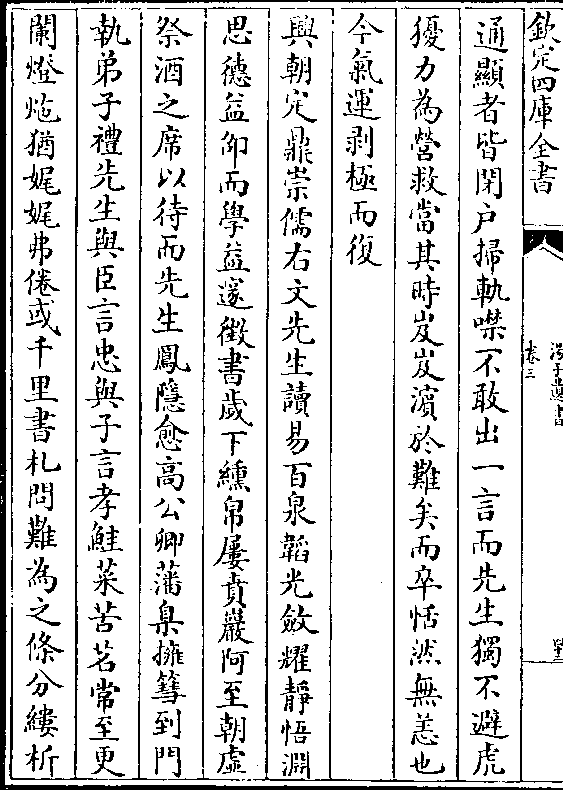 欽定四庫全書
湯子遺書
卷三
通顯者皆閉户掃軌噤不敢出一言而先生獨不避虎
獶力為營救當其時岌岌濵於難矣而卒恬然無恙也
今氣運剥極而復
興朝定鼎崇儒右文先生讀易百泉韜光斂耀靜悟淵
思德益卲而學益邃徵書歲下纁帛屢賁巖阿至朝虛
祭酒之席以待而先生鳳隱愈高公卿藩臬擁篲到門
執弟子禮先生與臣言忠與子言孝鮭菜苦茗常至更
闌燈灺猶娓娓弗倦或千里書札問難為之條分縷析